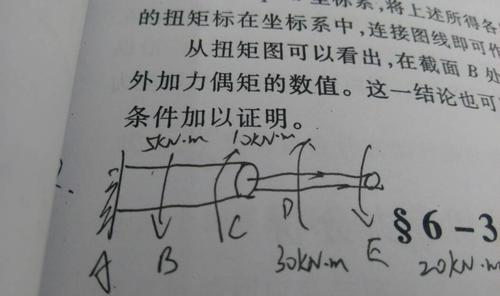 坐标系,将上述所得各
的扭矩标在坐标系中,连接图线即可作
从扭矩图可以看出,在截面 B 处
外加力偶矩的数值。这一结论也可
条件加以证明。
5kN·m 10kN·m
A B C D E
30kN·m 20kN·m
§6-3